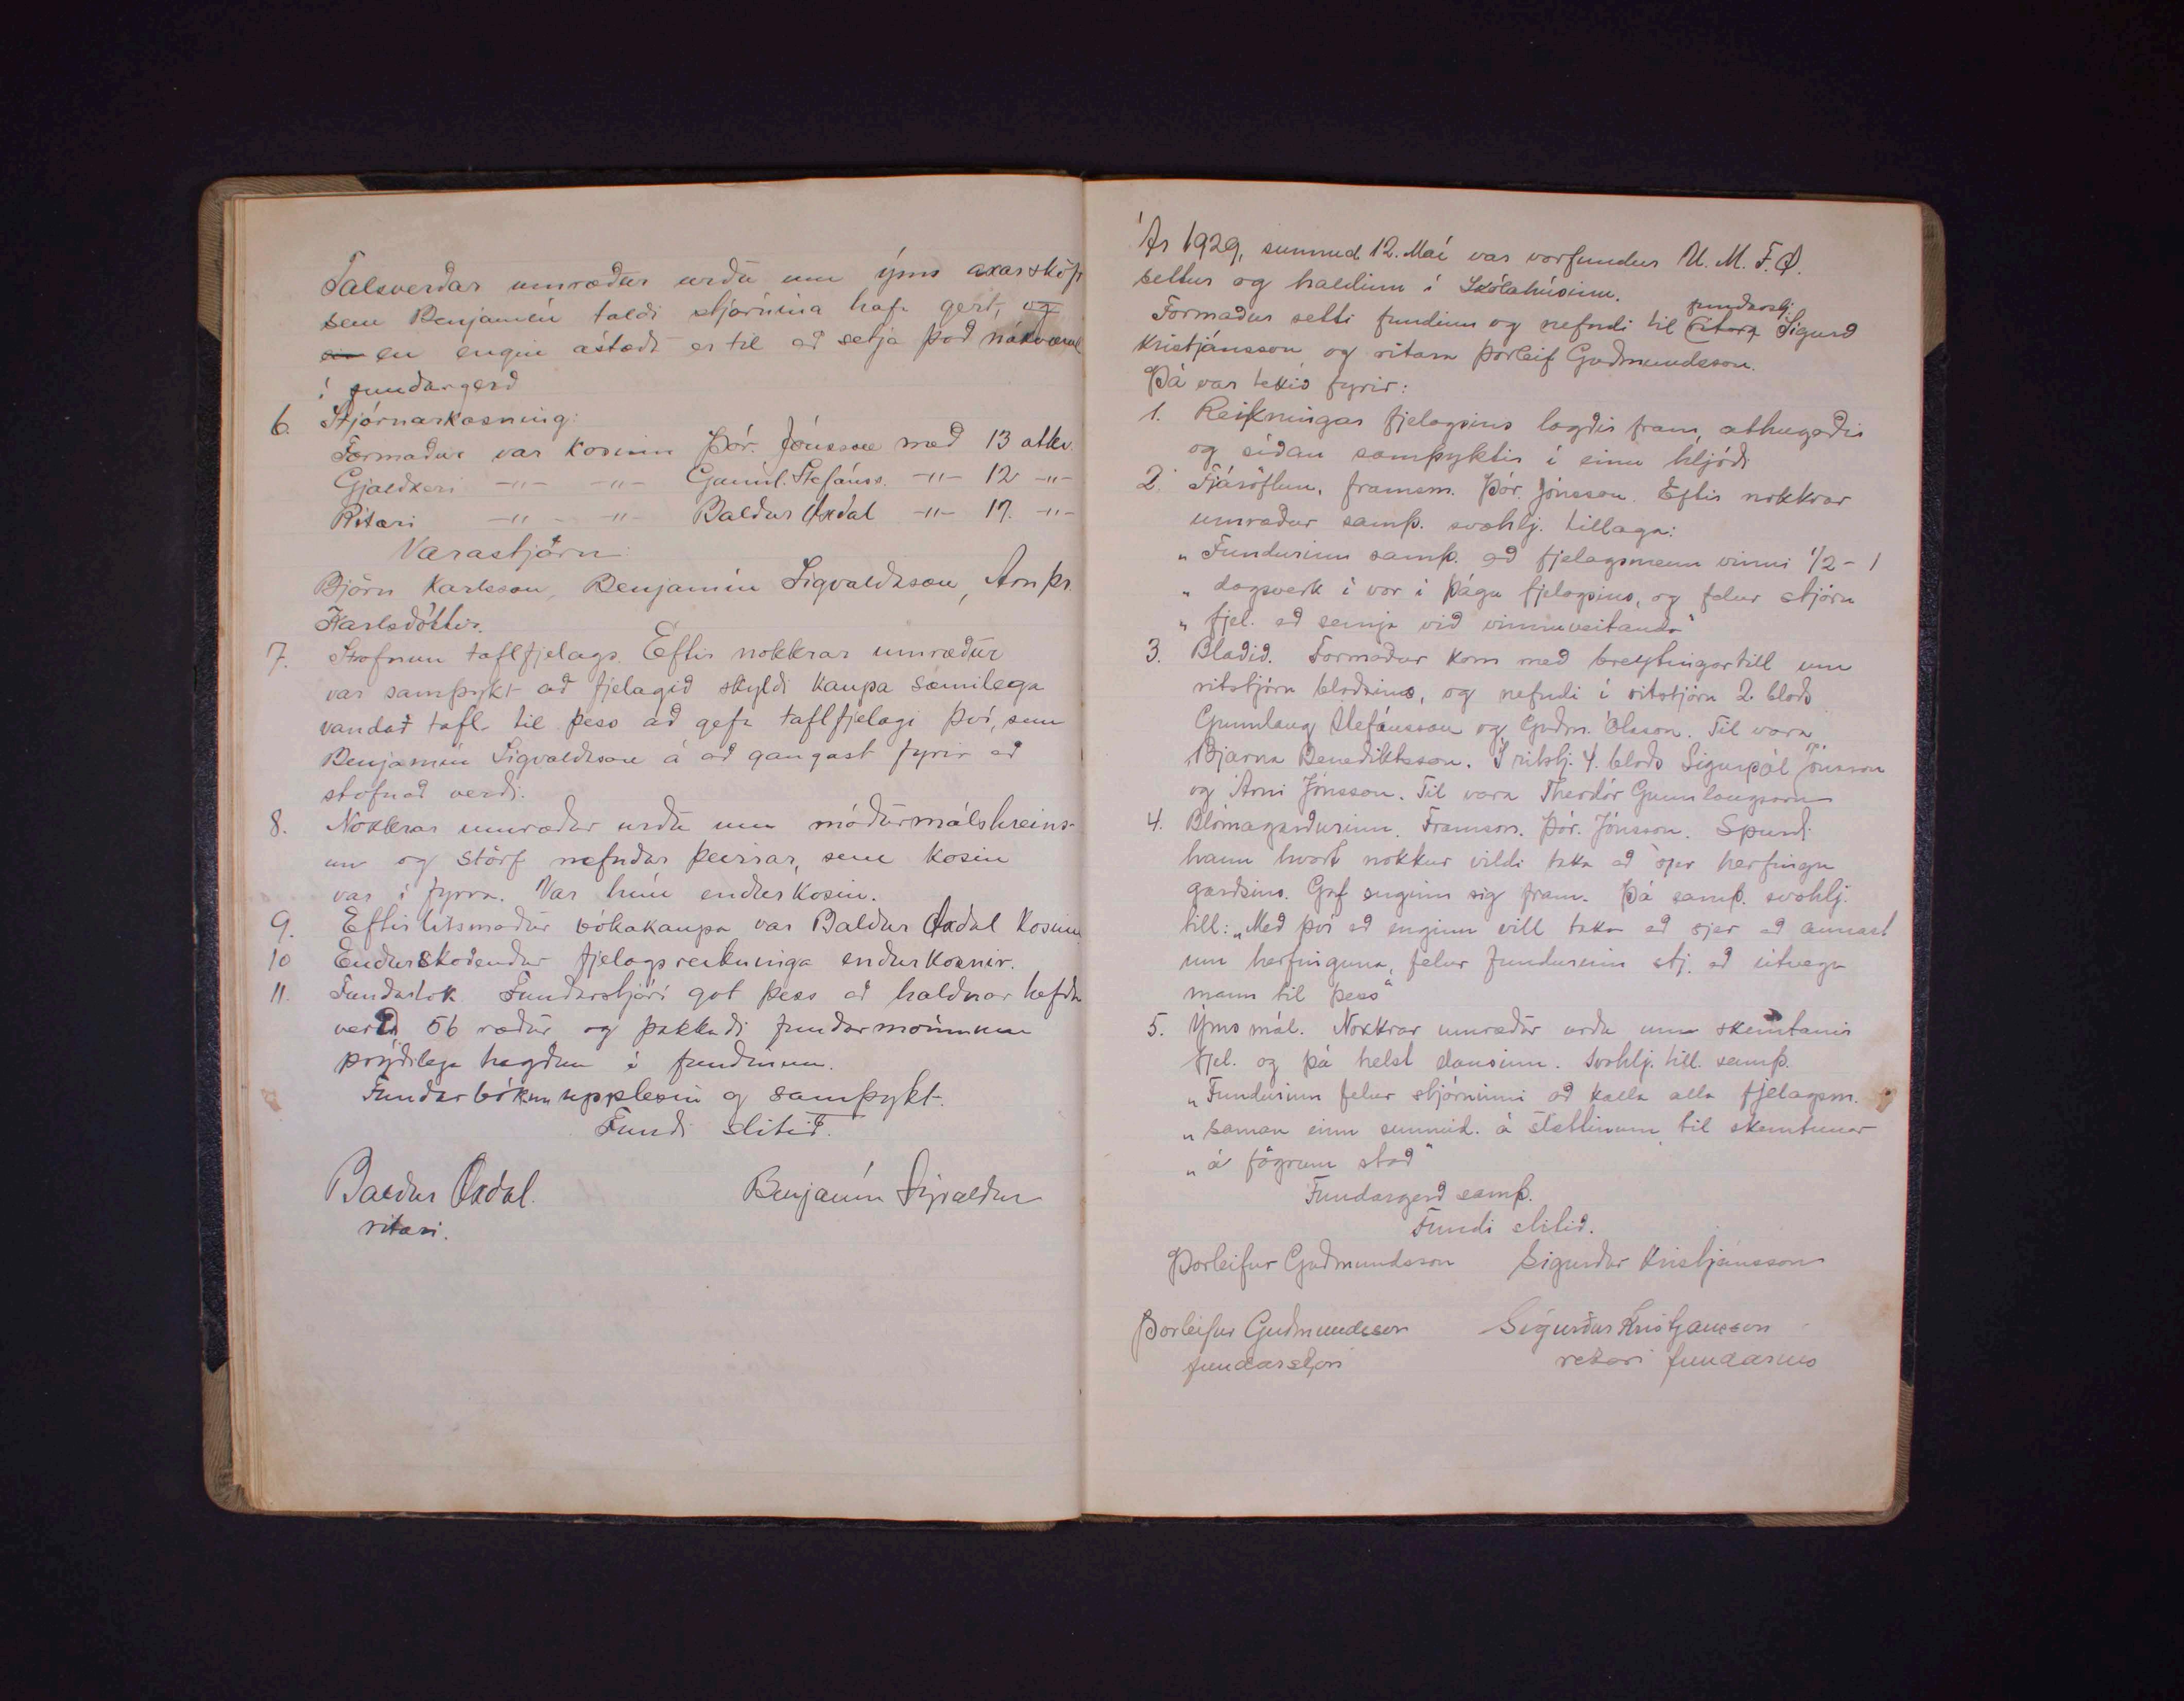 Talsverðar umræður urðu um ýms axarsköp
sem Benjamín taldi stjórnina hafa gert, og
en engin ástæða er til að setja það nákvæml
í fundargerð
6. Stjórnarkosning:
Formaður var kosinn Þór. Jónsson með 13 atkv.
Gjaldkeri -"- -"- Gunnl. Stefánss. -"- 12 -"-
Ritari -"- -"- Baldur Öxdal -"- 17. -"-
Varastjórn:
Björn Karlsson, Benjamín Sigvaldason, Arnþr.
Karlsdóttir.
7. Stofnun taflfjelags. Eftir nokkrar umræður
var samþykt að fjelagið skyldi kaupa sæmilega
vandað tafl til þess að gefa taflfjelagi því, sem
Benjamín Sigvaldason á að gangast fyrir að
stofnað verði.
8. Nokkrar umræður urðu um móðurmálshreins-
un og störf nefndar þeirrar, sem kosin
var í fyrra. Var hún endurkosin.
9. Eftirlitsmaður bókakaupa var Baldur Öxdal kosinn
10 Endurskoðendur fjelagsreikninga endurkosnir.
11. Fundarlok. Fundarstjóri gat þess að haldnar hefðu
verið 56 ræður og þakkaði fundarmönnum
prýðilega hegðun á fundinum.
Fundarbókun upplesin og samþykt.
Fundi slitið.
Baldur Öxdal. Benjamín Sigvaldason
ritari.
Ár 1929, sunnud. 12. Maí var vorfundur U. M. F. Ö.
settur og haldinn í Skólahúsinu.
fundarstj.
Formaður setti fundinn og nefndi til (ritara Sigurð
Kristjánsson og ritara Þorleif Guðmundsson.
Þá var tekið fyrir:
1. Reikningar fjelagsins lagðir fram, athugaðir
og síðan samþyktir í einu hljóði
2. Fjáröflun, framsm. Þór. Jónsson. Eftir nokkrar
umræður samþ. svohlj. tillaga:
„Fundurinn samþ. að fjelagsmenn vinni 1/2 - 1
„ dagsverk í vor í þágu fjelagsins, og felur stjórn
„ fjel. að semja við vinnuveitanda"
3. Blaðið. Formaður kom með breytingartill um
ritstjórn blaðsins, og nefndi í ritstjórn 2. blaðs
Gunnlaug Stefánsson og Guðm. Ólsson. Til vara
Bjarna Benediktsson. Í ritstj. 4. blaðs Sigurpál Jónsson
og Árni Jónsson. Til vara Theodór Gunnlaugsson
4. Blómagarðurinn. Framsm. Þór. Jónsson. Spurði
hann hvort nokkur vildi taka að sjer herfingu
garðsins. Gaf enginn sig fram. Þá samþ. svohlj.
till: „Með því að enginn vill taka að sjer að annast
um herfinguna, felur fundurinn stj. að útvega
mann til þess"
5. Ýms mál. Nokkrar umræður urðu um skemtanir
fjel. og þá helst dansinn. Svohlj. till. samþ.
„Fundurinn felur stjórninni að kalla alla fjelagsm.
„ saman einn sunnud. á slættinum til skemtunar
„ á fögrum stað"
Fundargerð samþ.
Fundi slitið.
Þorleifur Guðmundsson Sigurður Kristjánsson
Þorleifur Guðmundsson Sigurður Kristjánsson
fundarstjóri ritari fundarins